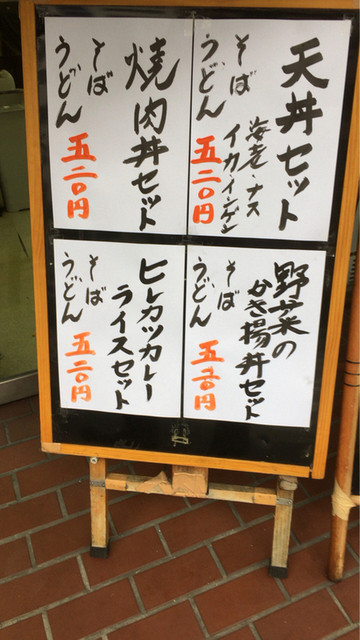 天丼セット
海老・ナス
イカ・インゲン
そば
うどん
五二〇円
焼肉丼セット
そば
うどん
五二〇円
野菜の
かき揚丼セット
そば
うどん
五二〇円
ヒレカツカレー
ライスセット
そば
うどん
五二〇円